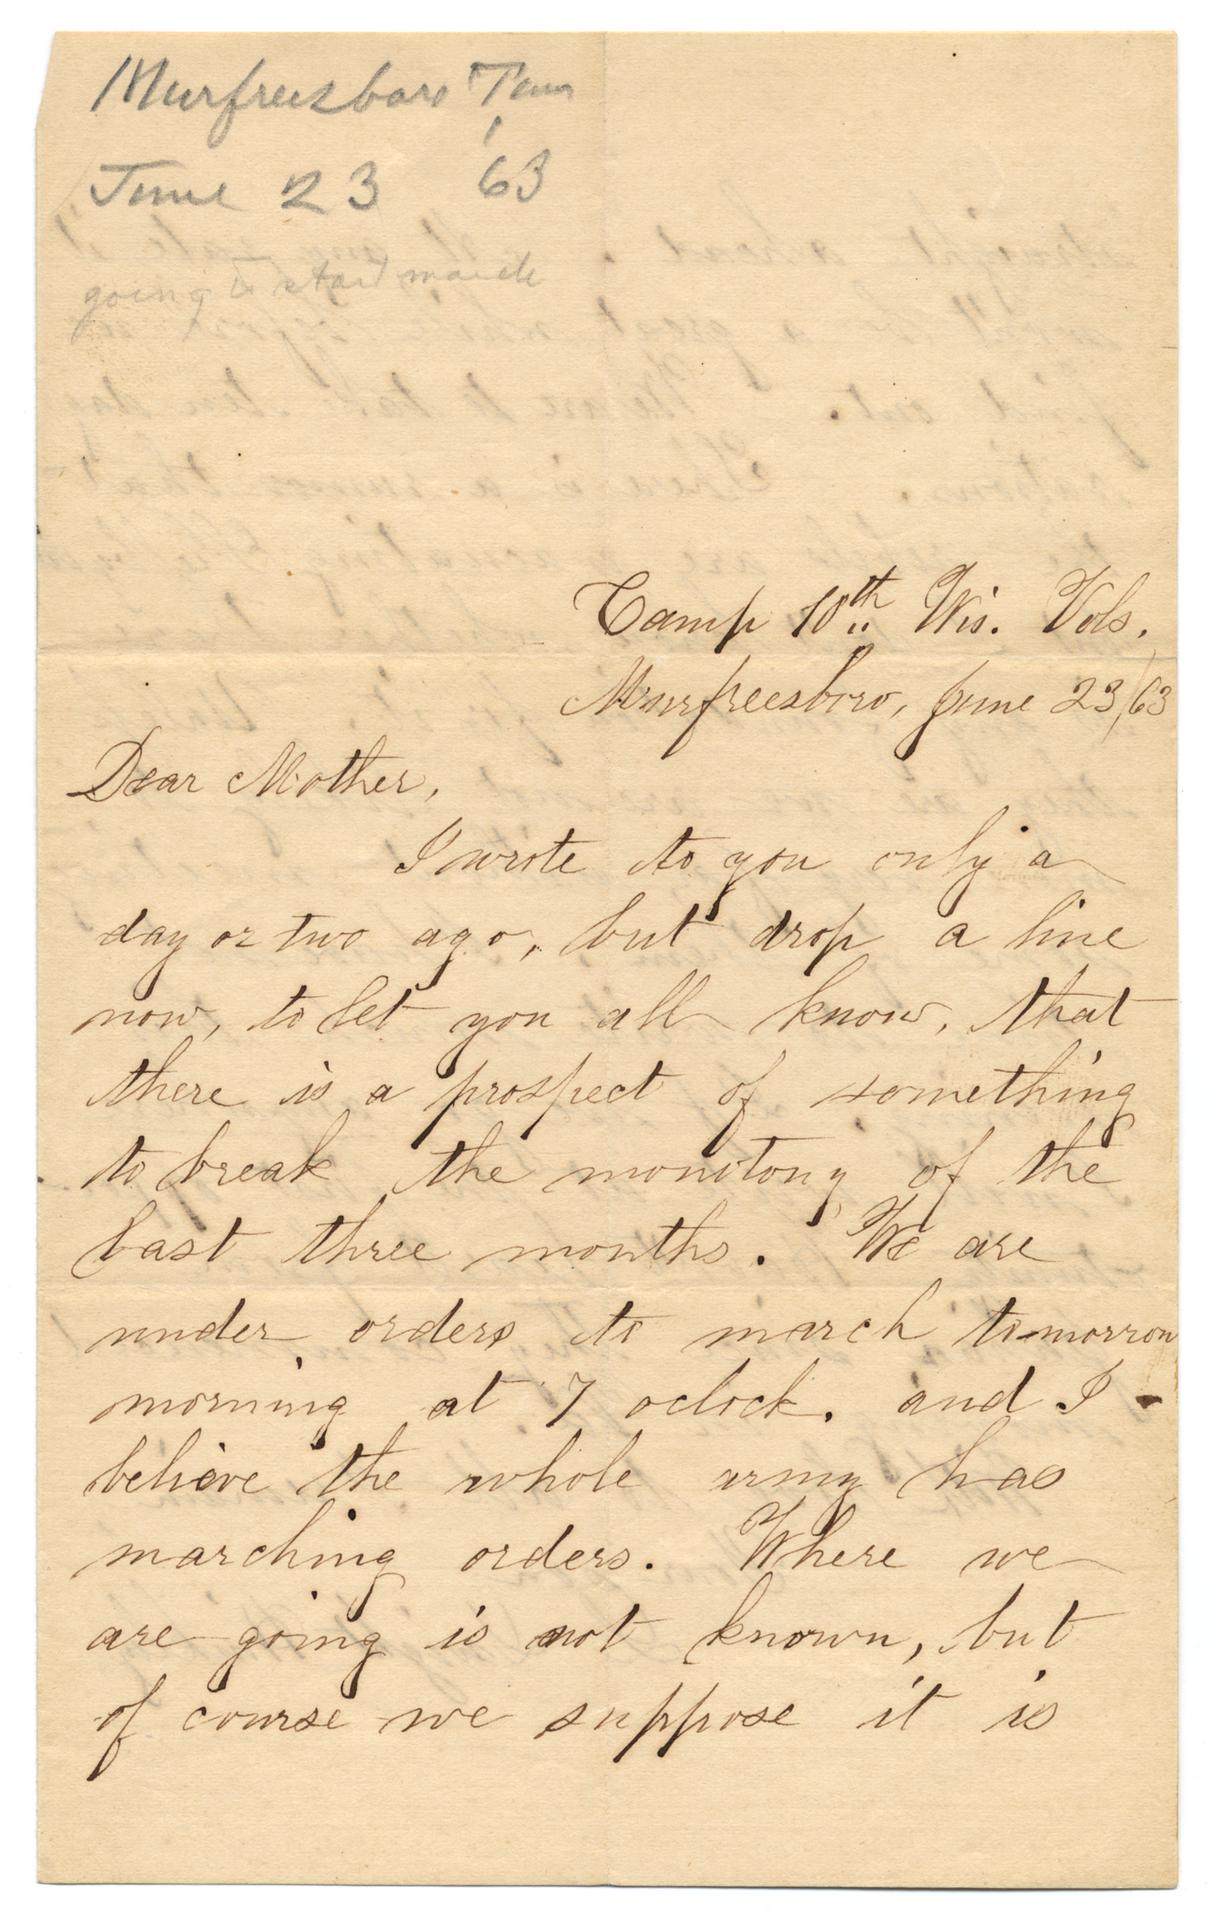 Murfreesboro Tenn
June 23 '63
going to start march
Camp 10th Wis. Vols.
Murfreesboro, June 23/63
Dear Mother,
I wrote to you only a
day or two ago, but drop a line
now, to let you all know, that
there is a prospect of something
to break the monotony of the
last three months. We are
under orders to march tomorrow
morning at 7 oclock. and I
believe the whole army has
marching orders. Where we
are going is not known, but
of course we suppose it is